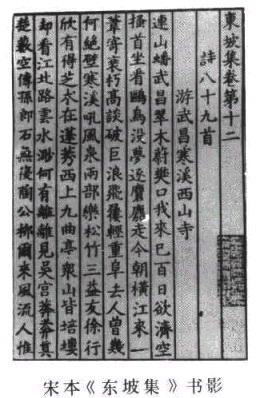 東坡集卷第十二
詩八十九首
游武昌寒溪西山寺
連山蟠武昌翠木蔚樊口我來已百日欲濟空
搔首坐看鷗鳥没夢逐麏麚走今朝橫江來一
葦寄衰朽高談破巨浪飛屨輕重阜去人曾幾
何絕壁寒溪吼風泉兩部樂松竹三益友徐行
欣有得芝朮在蓬莠西上九曲亭衆山皆培塿
却看江北路雲水渺何有離離見吳宮莽莽真
楚藪空傳孫郎石無復陶公柳爾來風流人惟
宋本《东坡集》书影